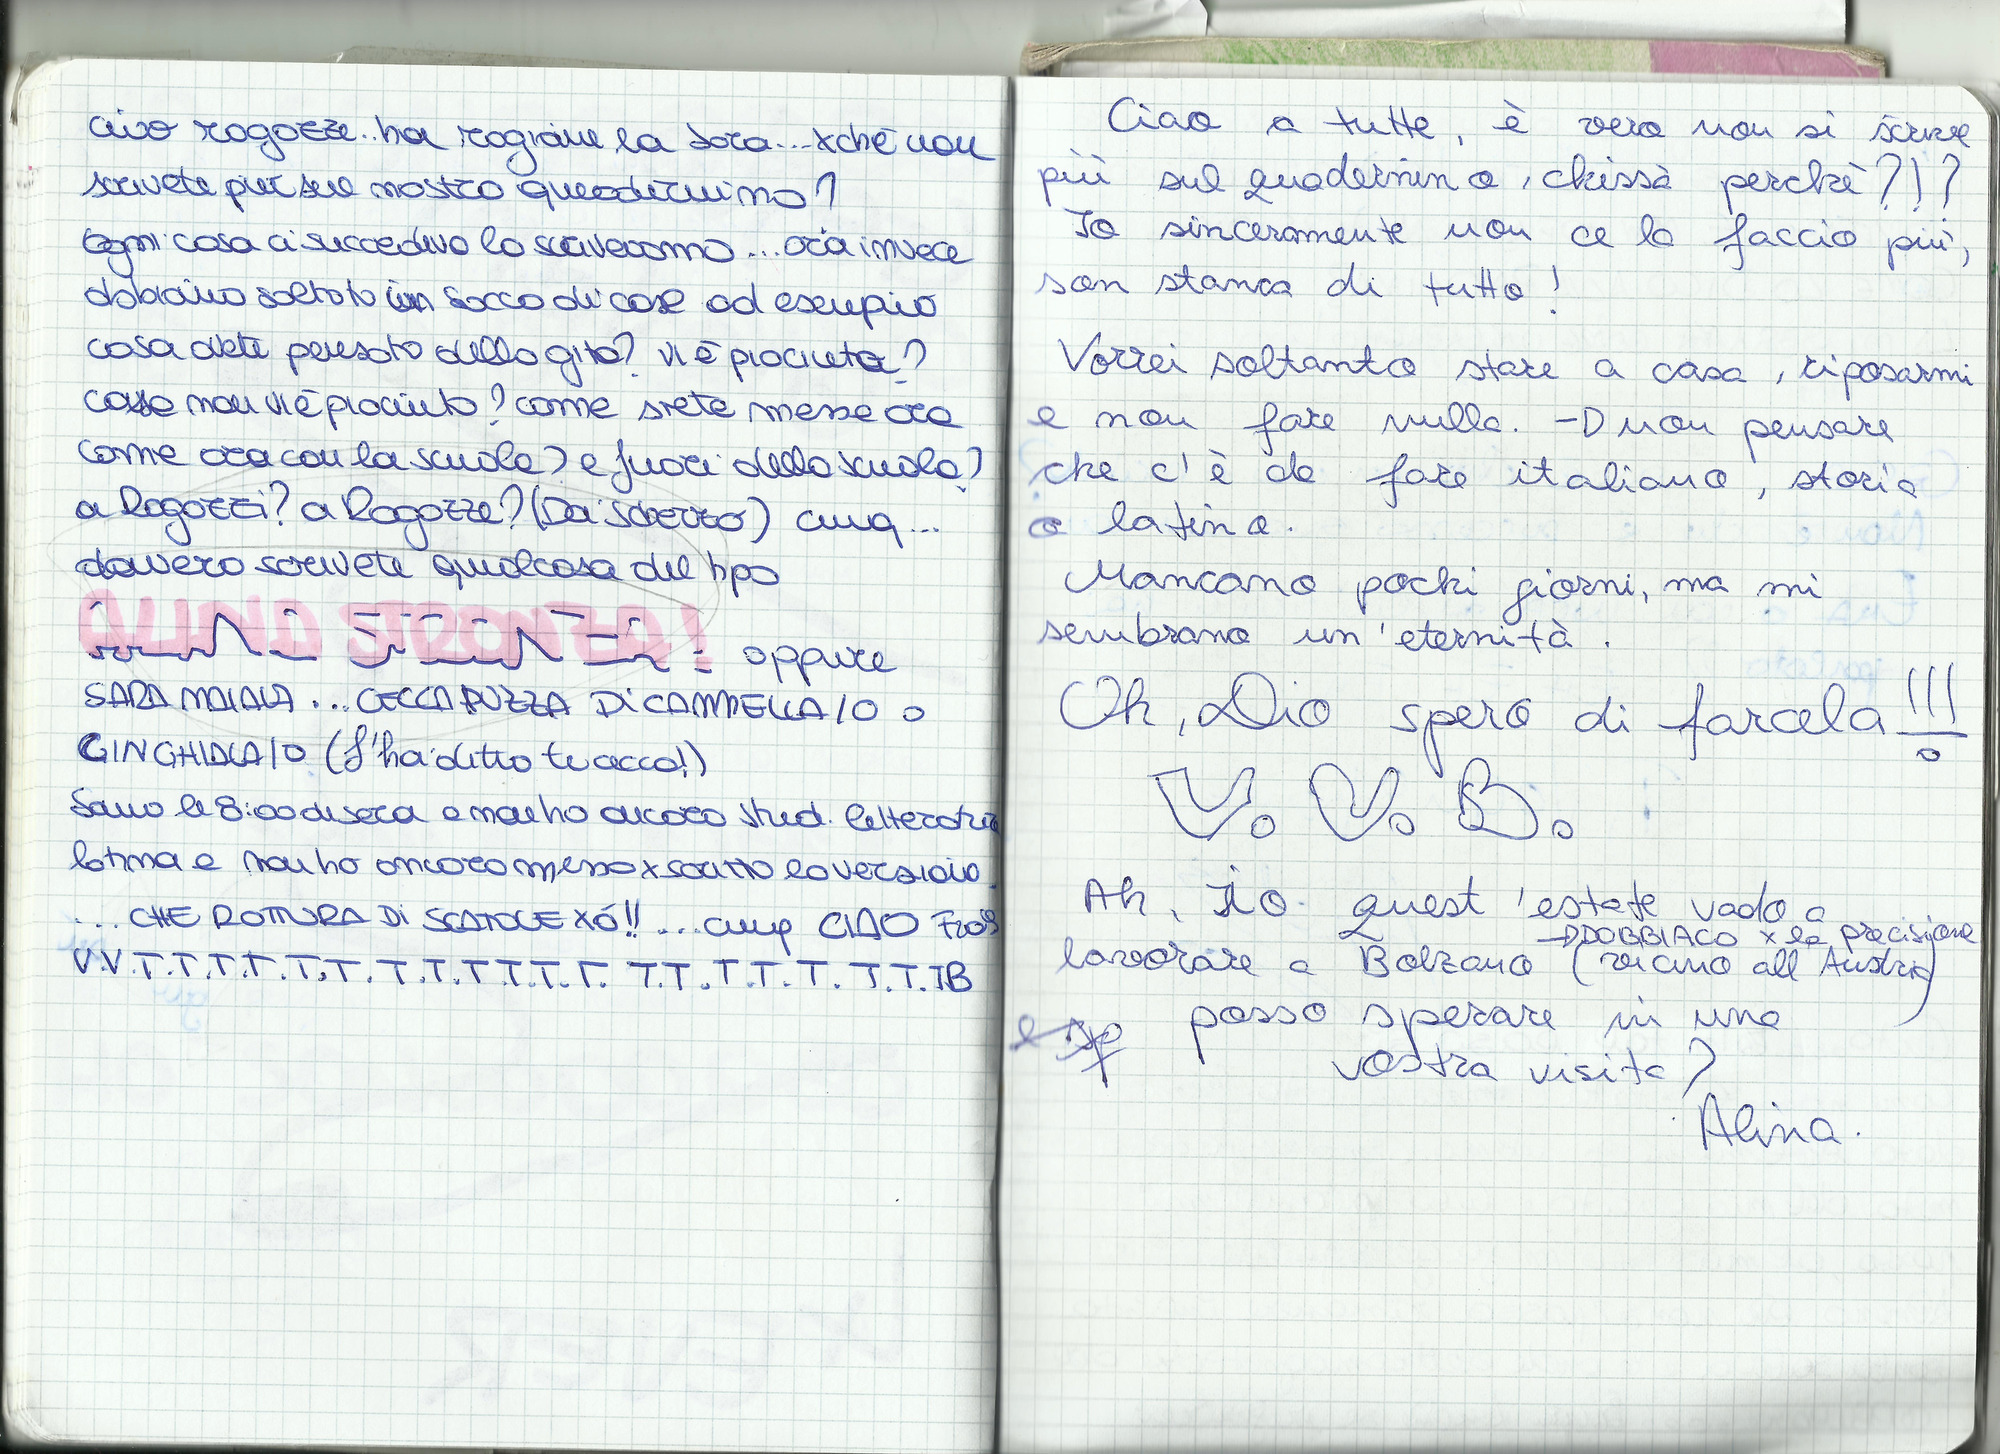 ciao ragazze.. ha ragione la Sara... xchè non
scrivete più sul nostro quadernino?
Ogni cosa ci succedeva lo scrivevamo... ora invece
dobbiamo soltato un sacco di cose ad esempio
cosa avete pensato della gita? vi è piaciuta?
cosa non vi è piaciuto? come siete messe ora
come ora con la scuola? e fuori della scuola?
a Ragazzi? a Ragazze? (Da scherzo) cmq...
davvero scrivete qualcosa del tipo
ALINA STRONZA! oppure
SARA MAIALA... CECCA PUZZA DI CAMMELLAIO o
CINGHIALAIO (l'hai ditto te acco!)
Sano le 8:00 di sera e non ho ancora stud. letteratura
latina e non ho ancora messo x scritto la versione.
... CHE ROTTURA DI SCATOLE XÓ!! ... cmq CIAO
V.V.T.T.T.T.T.T.T.T.T.T.T.T.T.T.T.T.T.T.T.T.TB
Ciao a tutte, è vero non si scrive
più sul quadernino, chissà perchè?!?
Io sinceramente non ce la faccio più,
son stanca di tutto!
Vorrei soltanto stare a casa, riposarmi
e non fare nulla. → non pensare
che c'è da fare italiano, storia
o latino.
Mancano pochi giorni, ma mi
sembrano un'eternità.
Oh, Dio spero di farcela!!!
V. V. B.
Ah, Io quest'estate vado a
→ DOBBIACO x la precisione
lavorare a Bolzano (vicino all'Austria)
e sp posso sperare in una
vostra visita?
Alina.